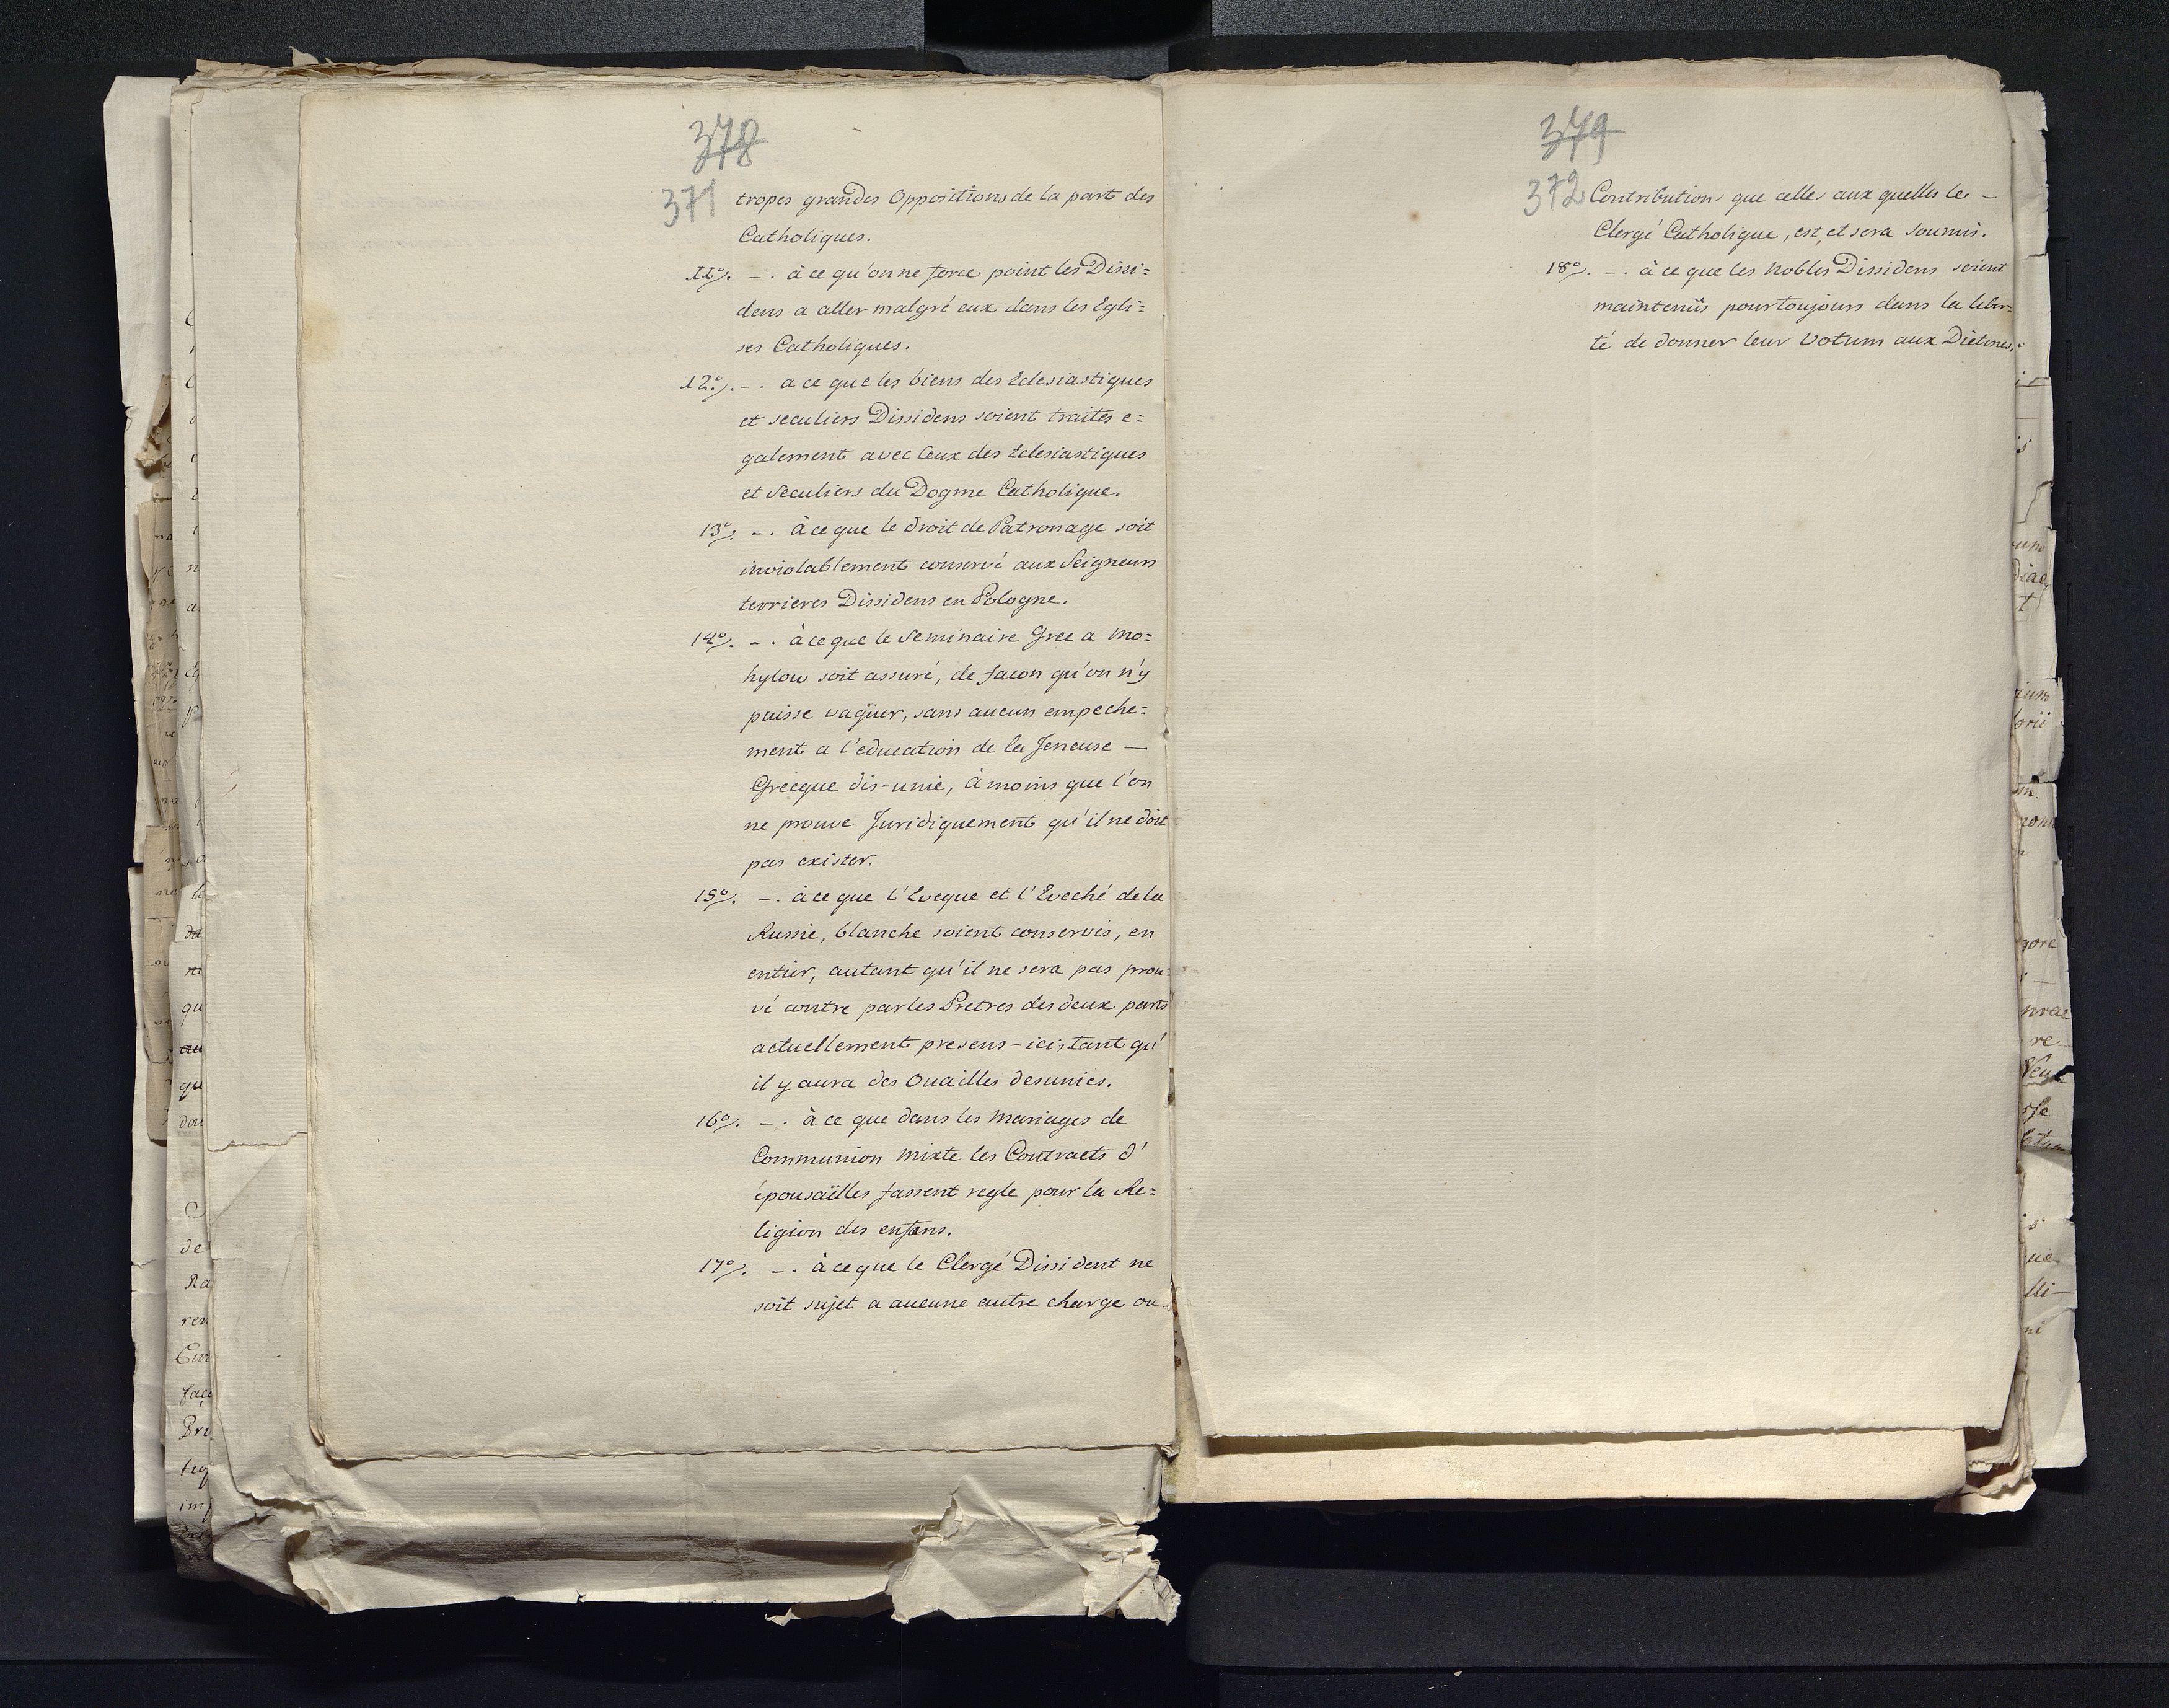 378
371 tropes grandes Oppositions de la part des
Catholiques.
11°. –. à ce qu'on ne force point les Dissi=
dens a aller malgré eux dans les Egli=
ses Catholiques.
12°. –. a ce que les biens des Eclesiastiques
et seculiers Dissidens soient traités e=
galement avec Ceux des Eclesiastiques
et Seculiers du Dogme Catholique.
13°. –. à ce que le droit de Patronage soit
inviolablement conservé aux Seigneurs
terrieres Dissidens en Pologne.
14°. –. à ce que le Seminaire Grec a Mo=
hylow soit assuré, de facon qu'on n'y
puisse vaquer, sans aucun empeche=
ment a l'education de la Jeneuse —
Grecque dis-unie, à moins que l'on
ne prouve Juridiquement qu'il ne doit
pas exister.
15°. –. à ce que l'Eveque et l'Eveché de la
Russie, blanche soient conservés, en
entier, autant qu'il ne sera pas prou=
vé contre par les Pretres des deux parts
actuellement presens-ici, tant qu'
il y aura des Ouailles desunies.
16°. –. à ce que dans les Mariages de
Communion mixte les Contracts d'
épousailles fassent regle pour la Re=
ligion des enfans.
17°. –. à ce que le Clergé Dissident ne
soit sujet a aucune autre charge ou
379
372 Contributions que celles aux quelles le –
Clergé Catholique, est, et sera soumis.
18°. –. à ce que les Nobles Dissidens soient
maintenûs pour toujours dans la liber=
té de donner leur Votum aux Diétines.